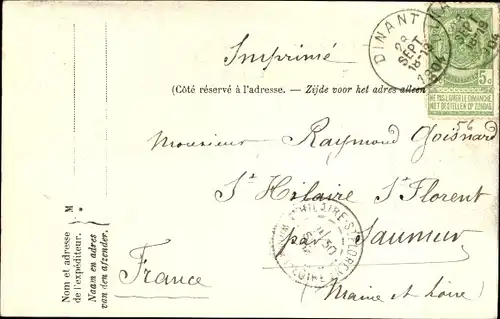 Imprimé
DINANT
28
SEPT
18-19
1904
5c
NE PAS LIVRER LE DIMANCHE
NIET BESTELLEN OP ZONDAG
(Côté réservé à l'adresse. — Zijde voor het adres alleen
56
Monsieur Raymond Goisnard
St Hilaire St Florent
par Saumur
France
(Maine et Loire)
M
Nom et adresse
de l'expéditeur.
Naam en adres
van den afzender.